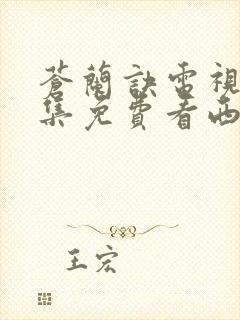 蒼蘭訣電視
集免費看西
王宏